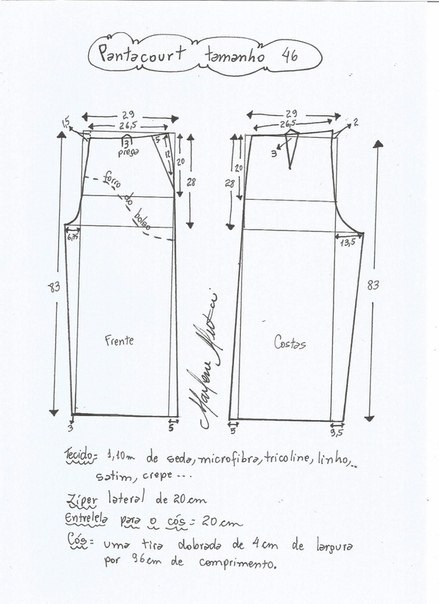 Pantacourt tamanho 46
29
26,5
1,5
3
prega
5
12
20
28
forro do bolso
6,75
83
Frente
3
5
Marlene Mukai
29
26,5
2
3
20
28
13,5
83
Costas
5
3,5
Tecido: 1,10m de seda, microfibra, tricoline, linho,
satim, crepe...
Zíper lateral de 20cm
Entretela para o cós = 20cm
Cós = uma tira dobrada de 4cm de largura
por 96cm de comprimento.